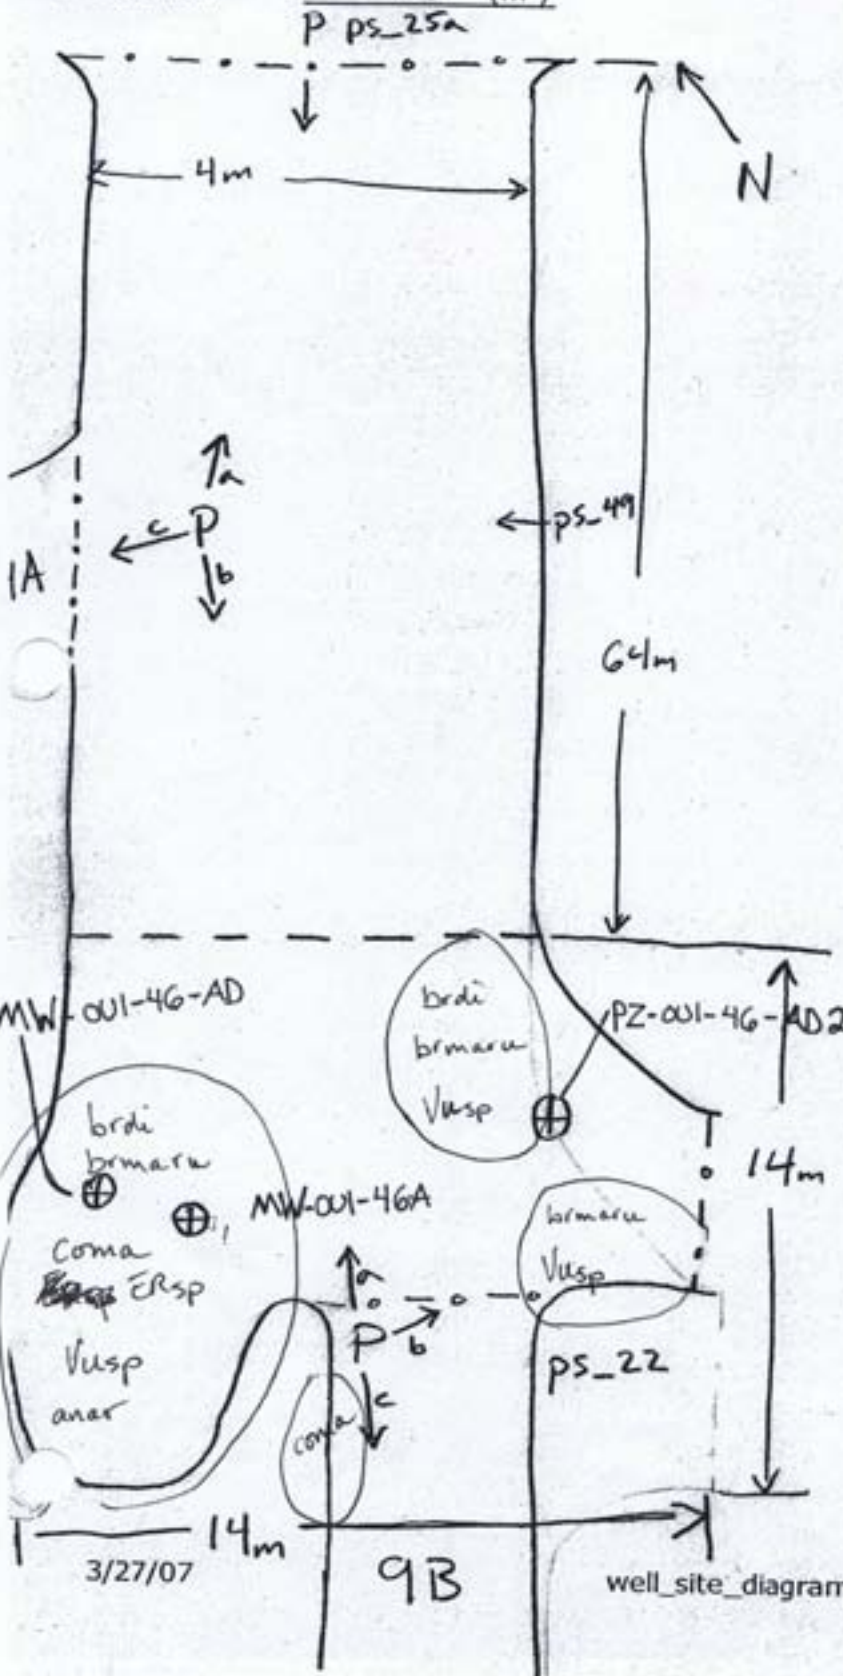 P ps_25a
4m
N
a
c P
b
ps_49
1A
64m
MW-OU1-46-AD
brdi
brmaru
Vusp
PZ-OU1-46-AD2
brdi
brmaru
MW-OU1-46A
coma
ERsp
Vusp
anar
14m
brmaru
Vusp
a
P b
c
ps_22
coma
14m
3/27/07
9B
well_site_diagram